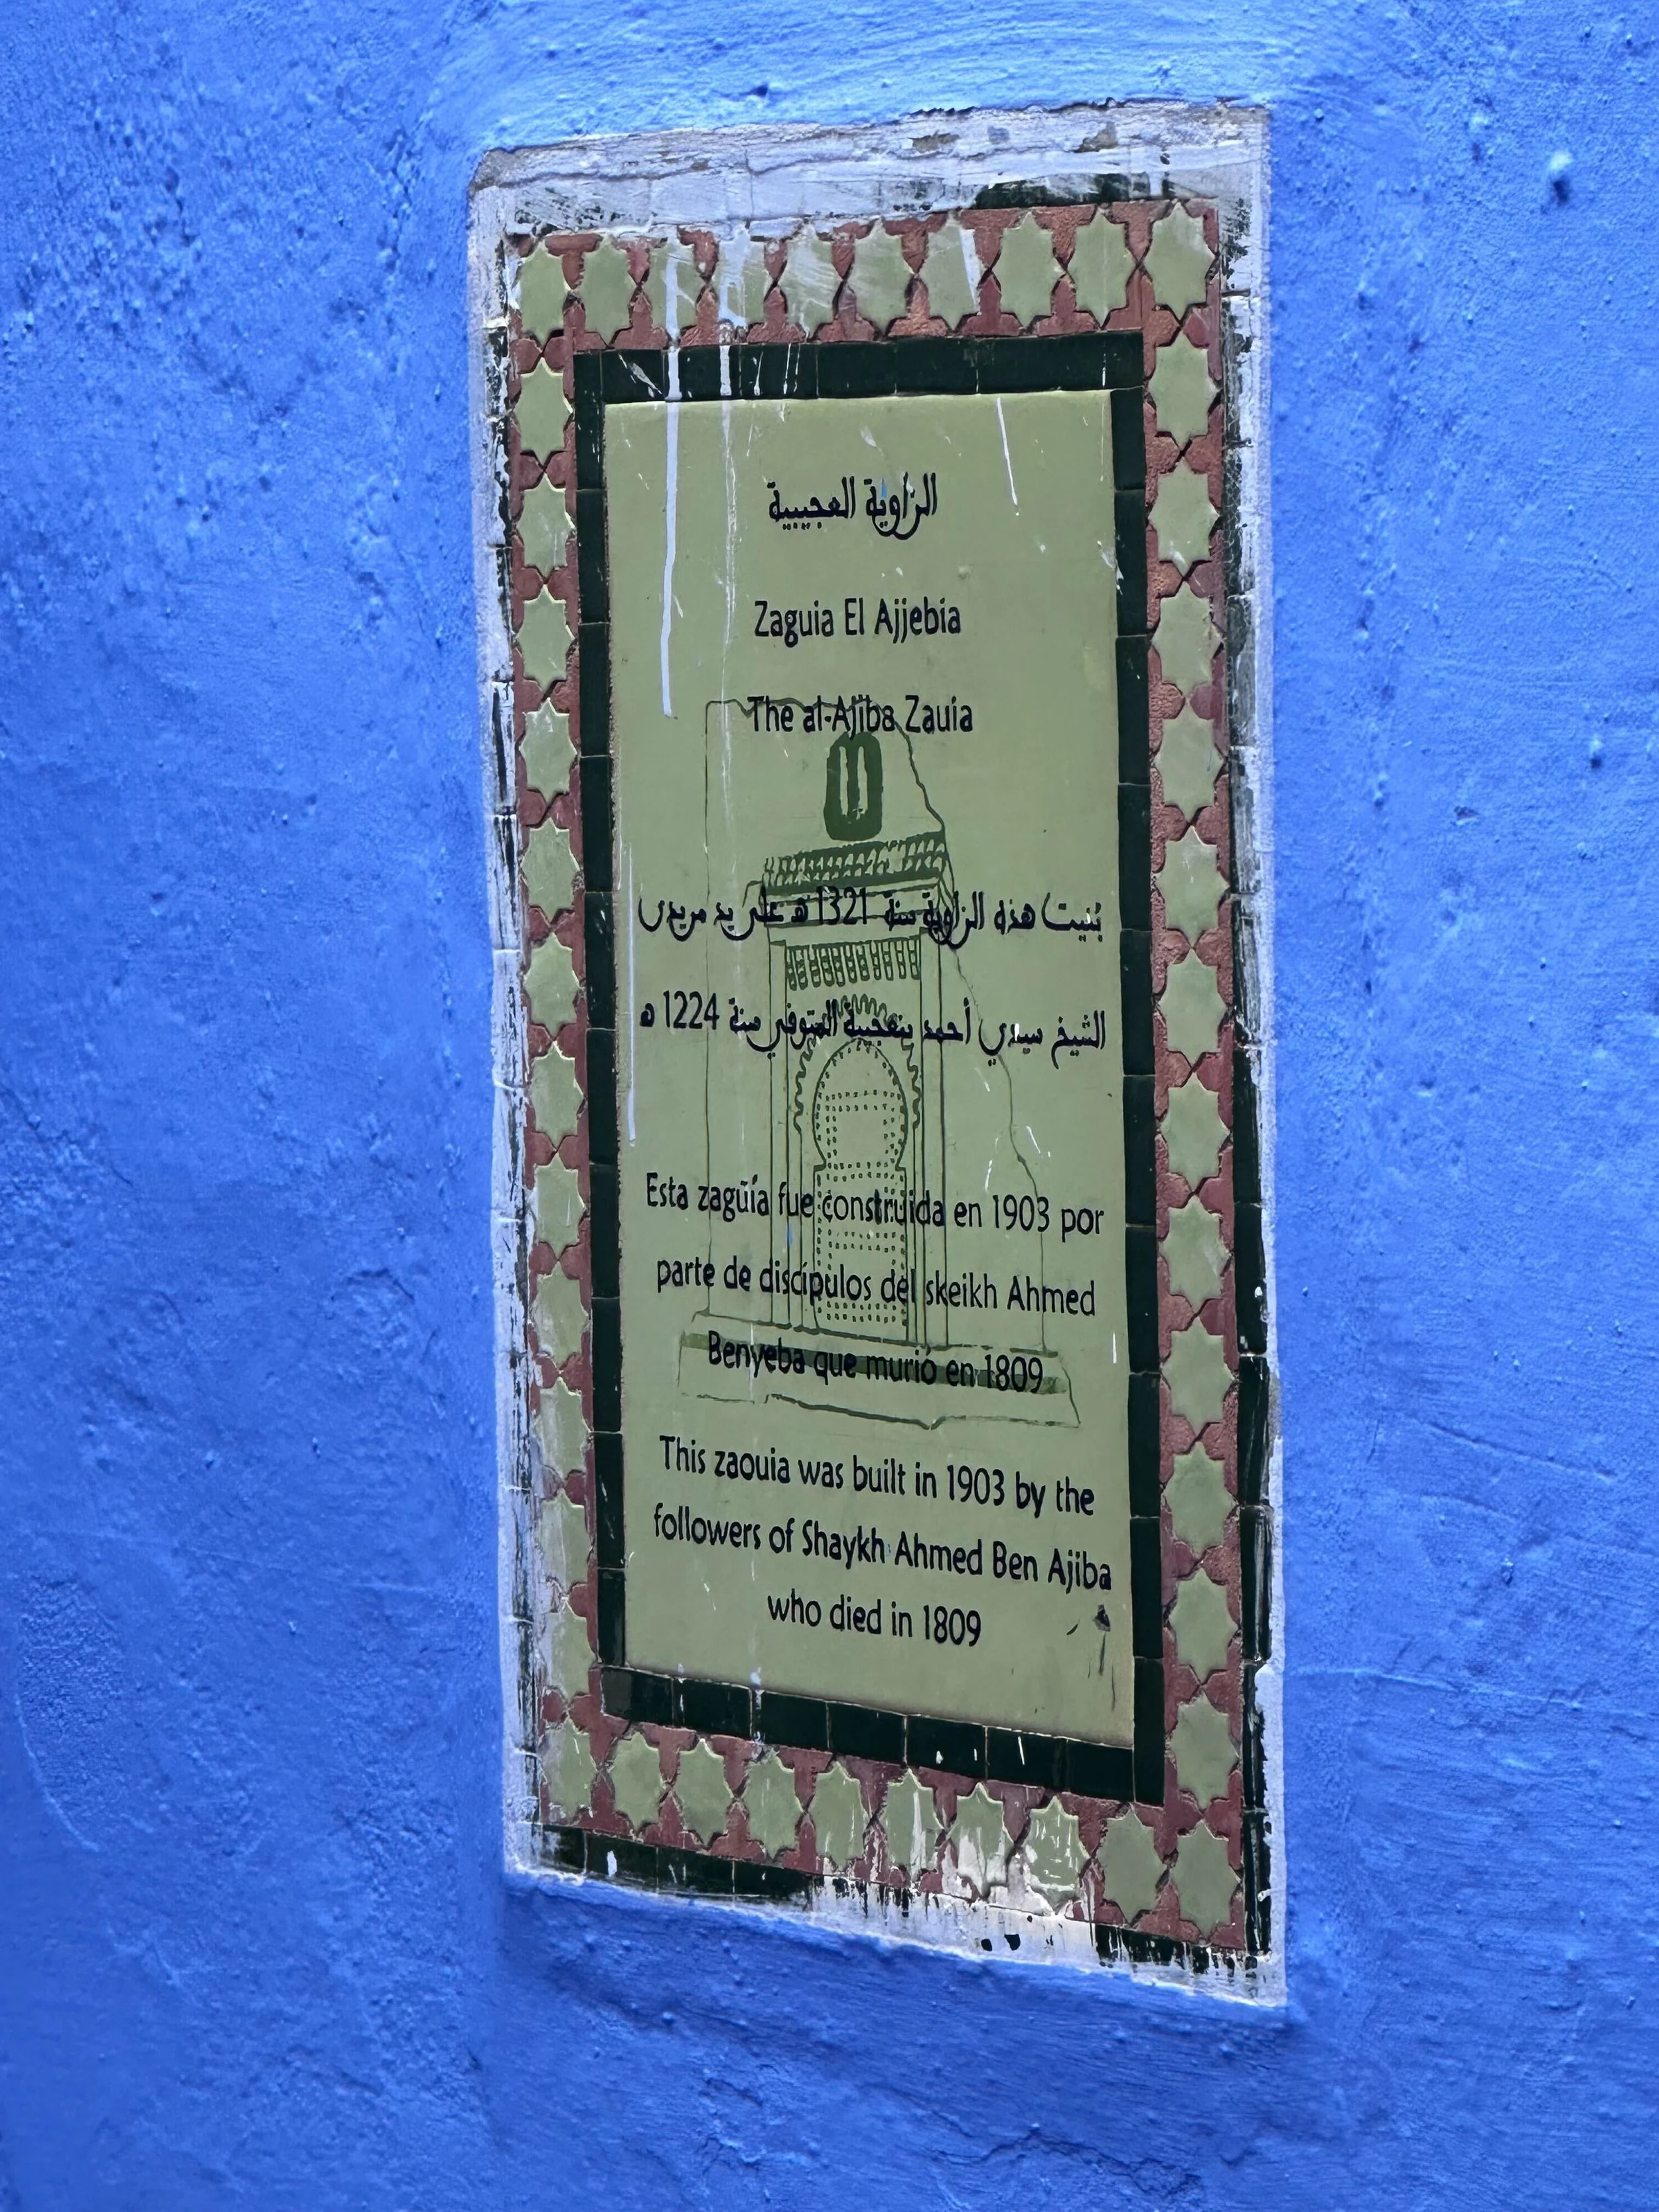 الزاوية العجيبية
Zaguia El Ajjebia
The al-Ajiba Zauia
بُنيت هذه الزاوية سنة 1321 ه على يد مريدي
الشيخ سيدي أحمد بنعجيبة المتوفي سنة 1224 ه
Esta zagüía fue construida en 1903 por
parte de discípulos del skeikh Ahmed
Benyeba que murió en 1809
This zaouia was built in 1903 by the
followers of Shaykh Ahmed Ben Ajiba
who died in 1809